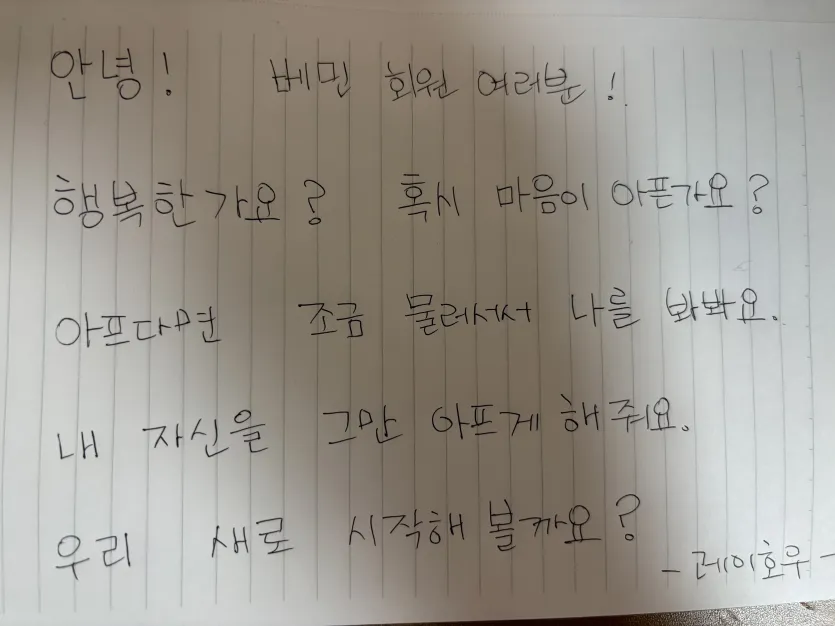 안녕! 베민 회원 여러분!
행복한가요? 혹시 마음이 아픈가요?
아프다면 조금 물러서서 나를 봐봐요.
내 자신을 그만 아프게 해줘요.
우리 새로 시작해 볼까요?
- 레이호우 -